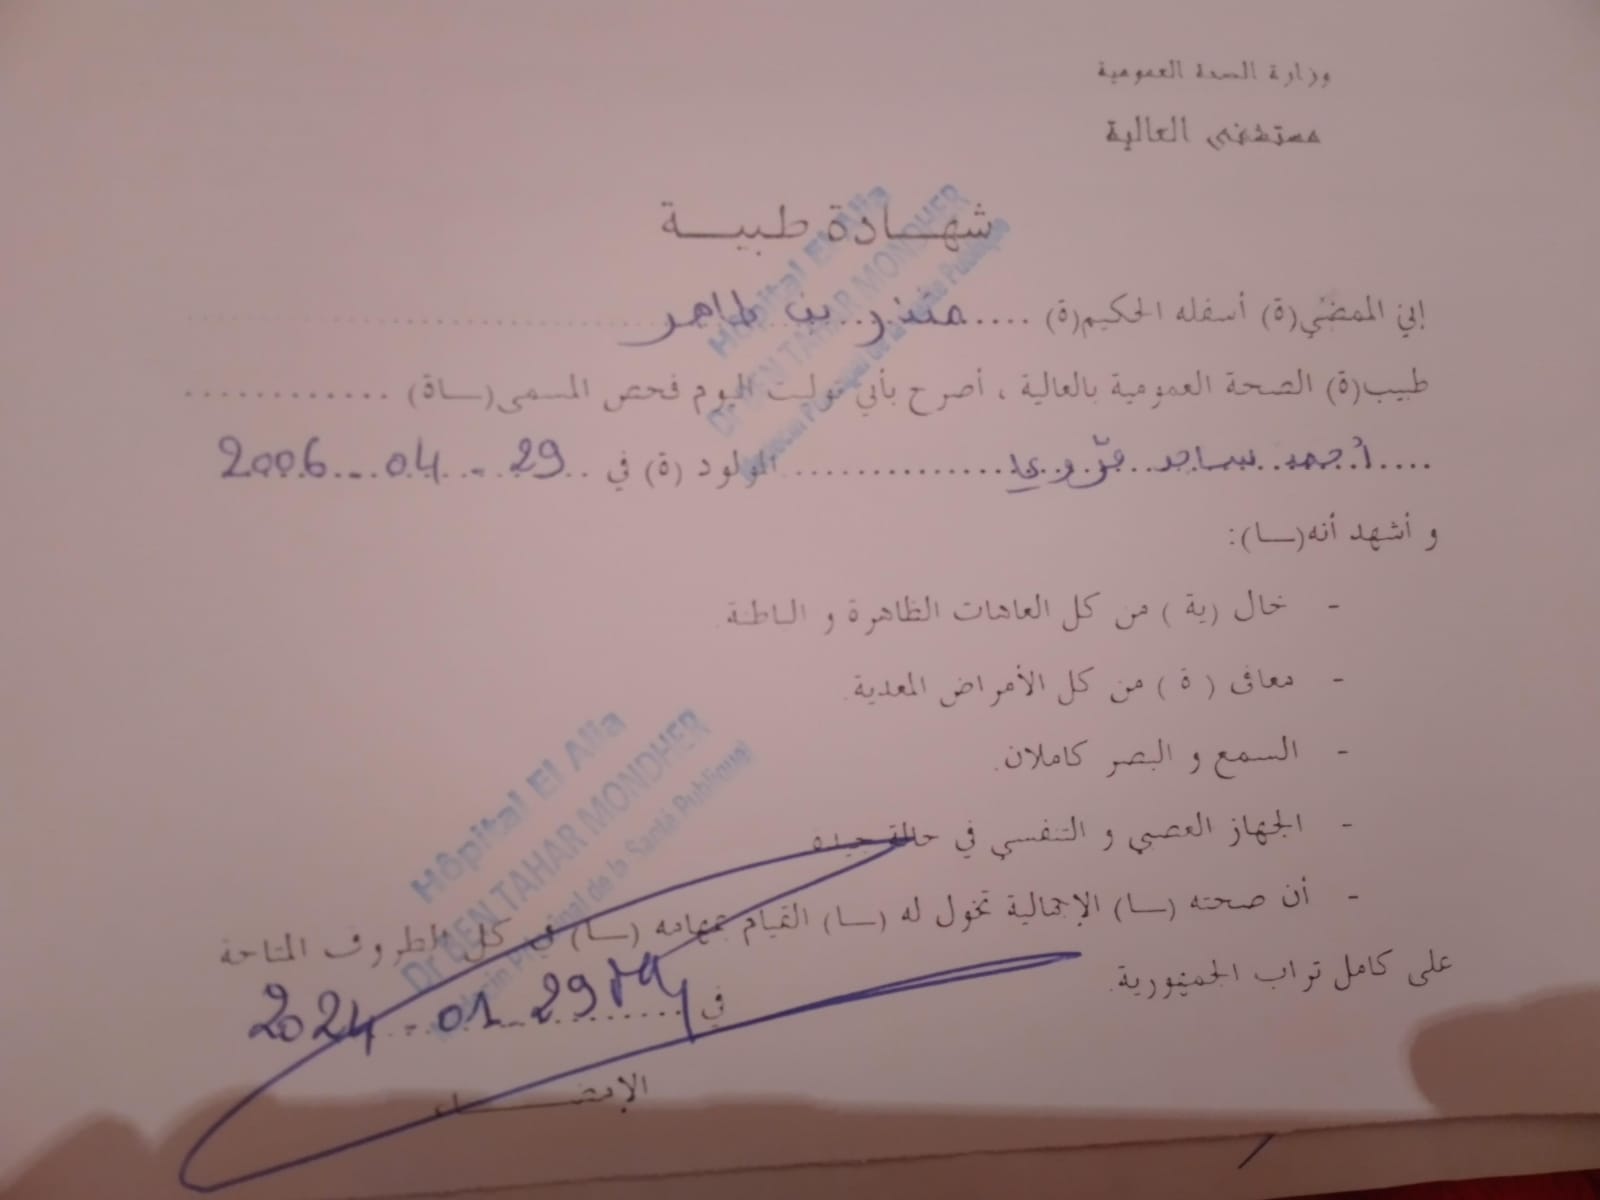 وزارة الصحة العمومية
مستشفى العالية
شهــادة طبيــة
إني الممضي(ة) أسفله الحكيم(ة) .... منذر بن طاهر
طبيب(ة) الصحة العمومية بالعالية ، أصرح بأني توليت اليوم فحص المسمى(ــاة) ............
.... أحمد ساجد ............ المولود (ة) في .. 29 - 04 - 2006
و أشهد أنه(ــا):
- خال (ية ) من كل العاهات الظاهرة و الباطنة.
- معافى ( ة ) من كل الأمراض المعدية.
- السمع و البصر كاملان.
- الجهاز العصبي و التنفسي في حالة جيدة
- أن صحته (ــا) الإجمالية تخول له (ــا) القيام بمهامه (ــا) في كل الظروف المتاحة
على كامل تراب الجمهورية.
في ........ 29 - 01 - 2024
الإمضــــــاء
Hôpital El Alia
Dr BEN TAHAR MONDHER
Médecin Principal de la Santé Publique
Hôpital El Alia
Dr BEN TAHAR MONDHER
Médecin Principal de la Santé Publique